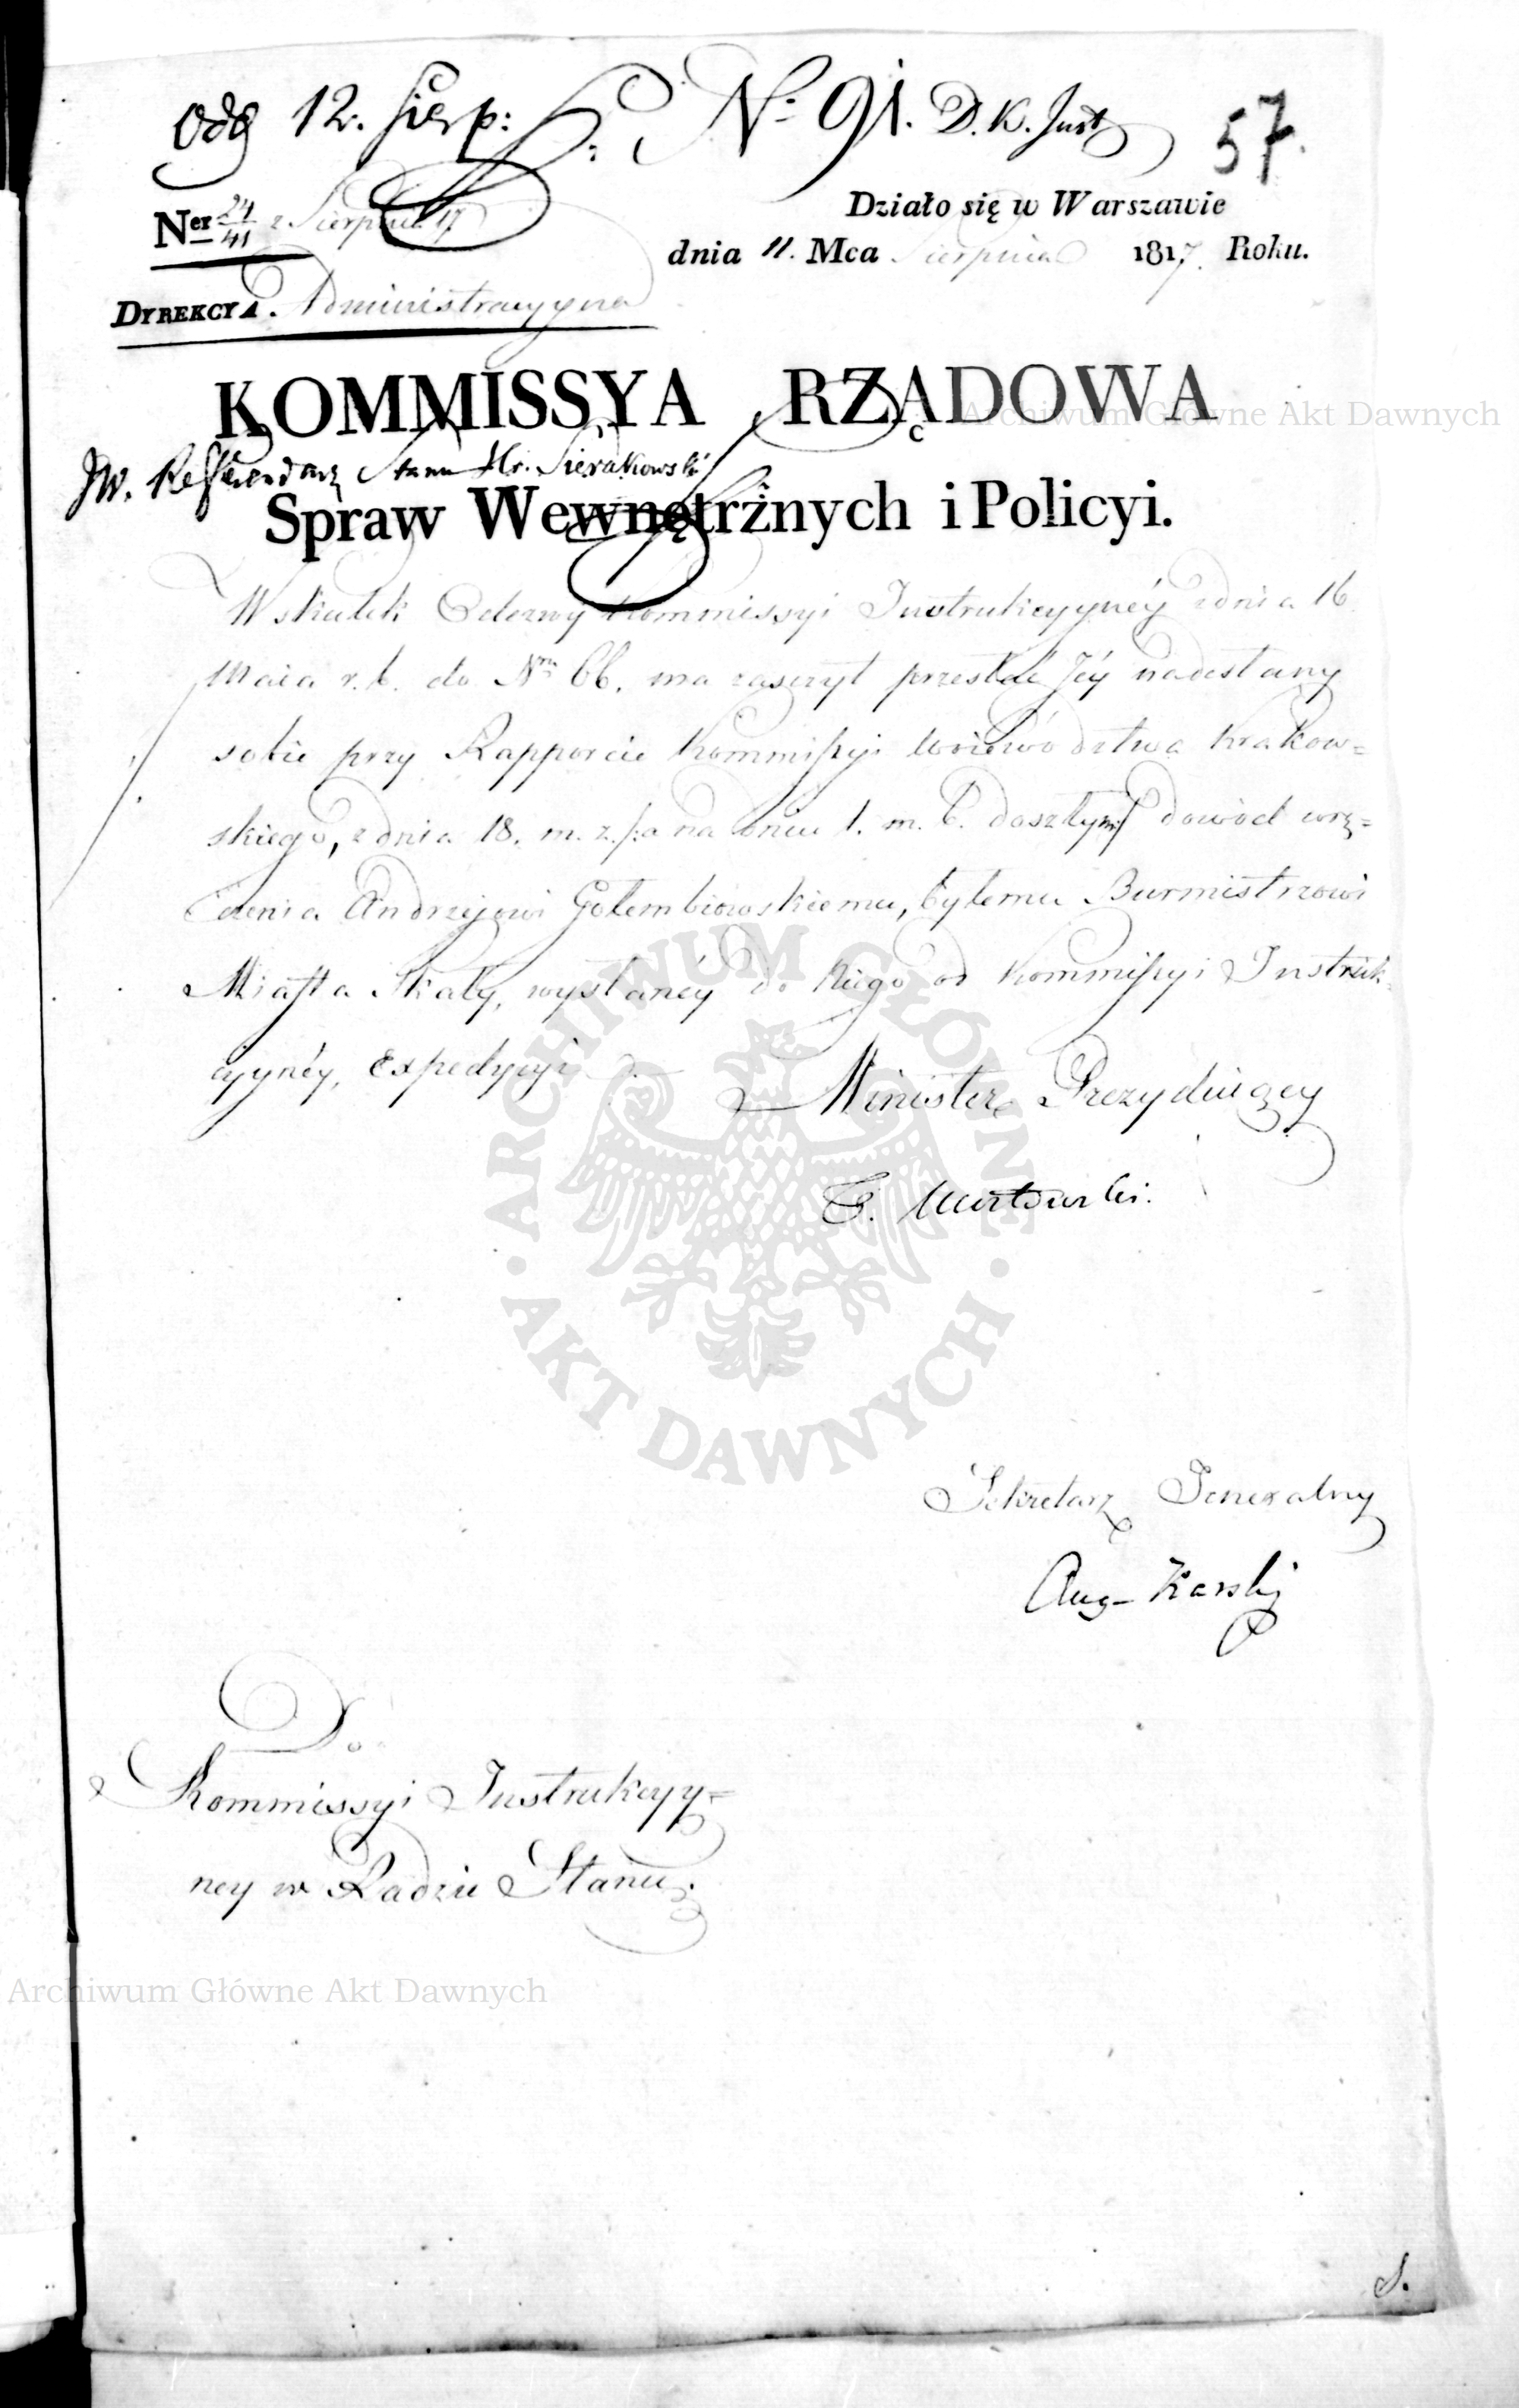 Odb 12. Sierp:
N: 91. D. K. Inst
57.
Ner 24/41 z Sierpnia 17
Działo się w Warszawie
dnia 11. Mca Sierpnia 1817. Roku.
DYREKCYA. Administracyyna
KOMMISSYA RZĄDOWA
JW. Refferendarz Stanu Hr. Sierakowski
Spraw Wewnętrznych i Policyi.
Wskutek Odezwy Kommissyi Instrukcyyney z dnia 16
Maia r. b. do Nru 66. ma zaszczyt przesłać Jéy nadesłany
sobie przy Rapporcie Kommissyi Woiewództwa Krakow=
skiego, z dnia 18. m. z. /:a na dniu 1. m. b. doszłym/ dowód wrę=
czenia Andrzejowi Gołembiowskiemu, byłemu Burmistrzowi
Miasta Skały, wysłanéy do Niego od Kommissyi Instruk=
cyynéy, Expedycyi.
Minister Prezyduiący
T. Mostowski.
Sekretarz Generalny
Aug. Karski
Do
Kommissyi Instrukcyy=
ney w Radzie Stanu.
S.
Archiwum Główne Akt Dawnych
ARCHIWUM GŁÓWNE · AKT DAWNYCH ·
Archiwum Główne Akt Dawnych